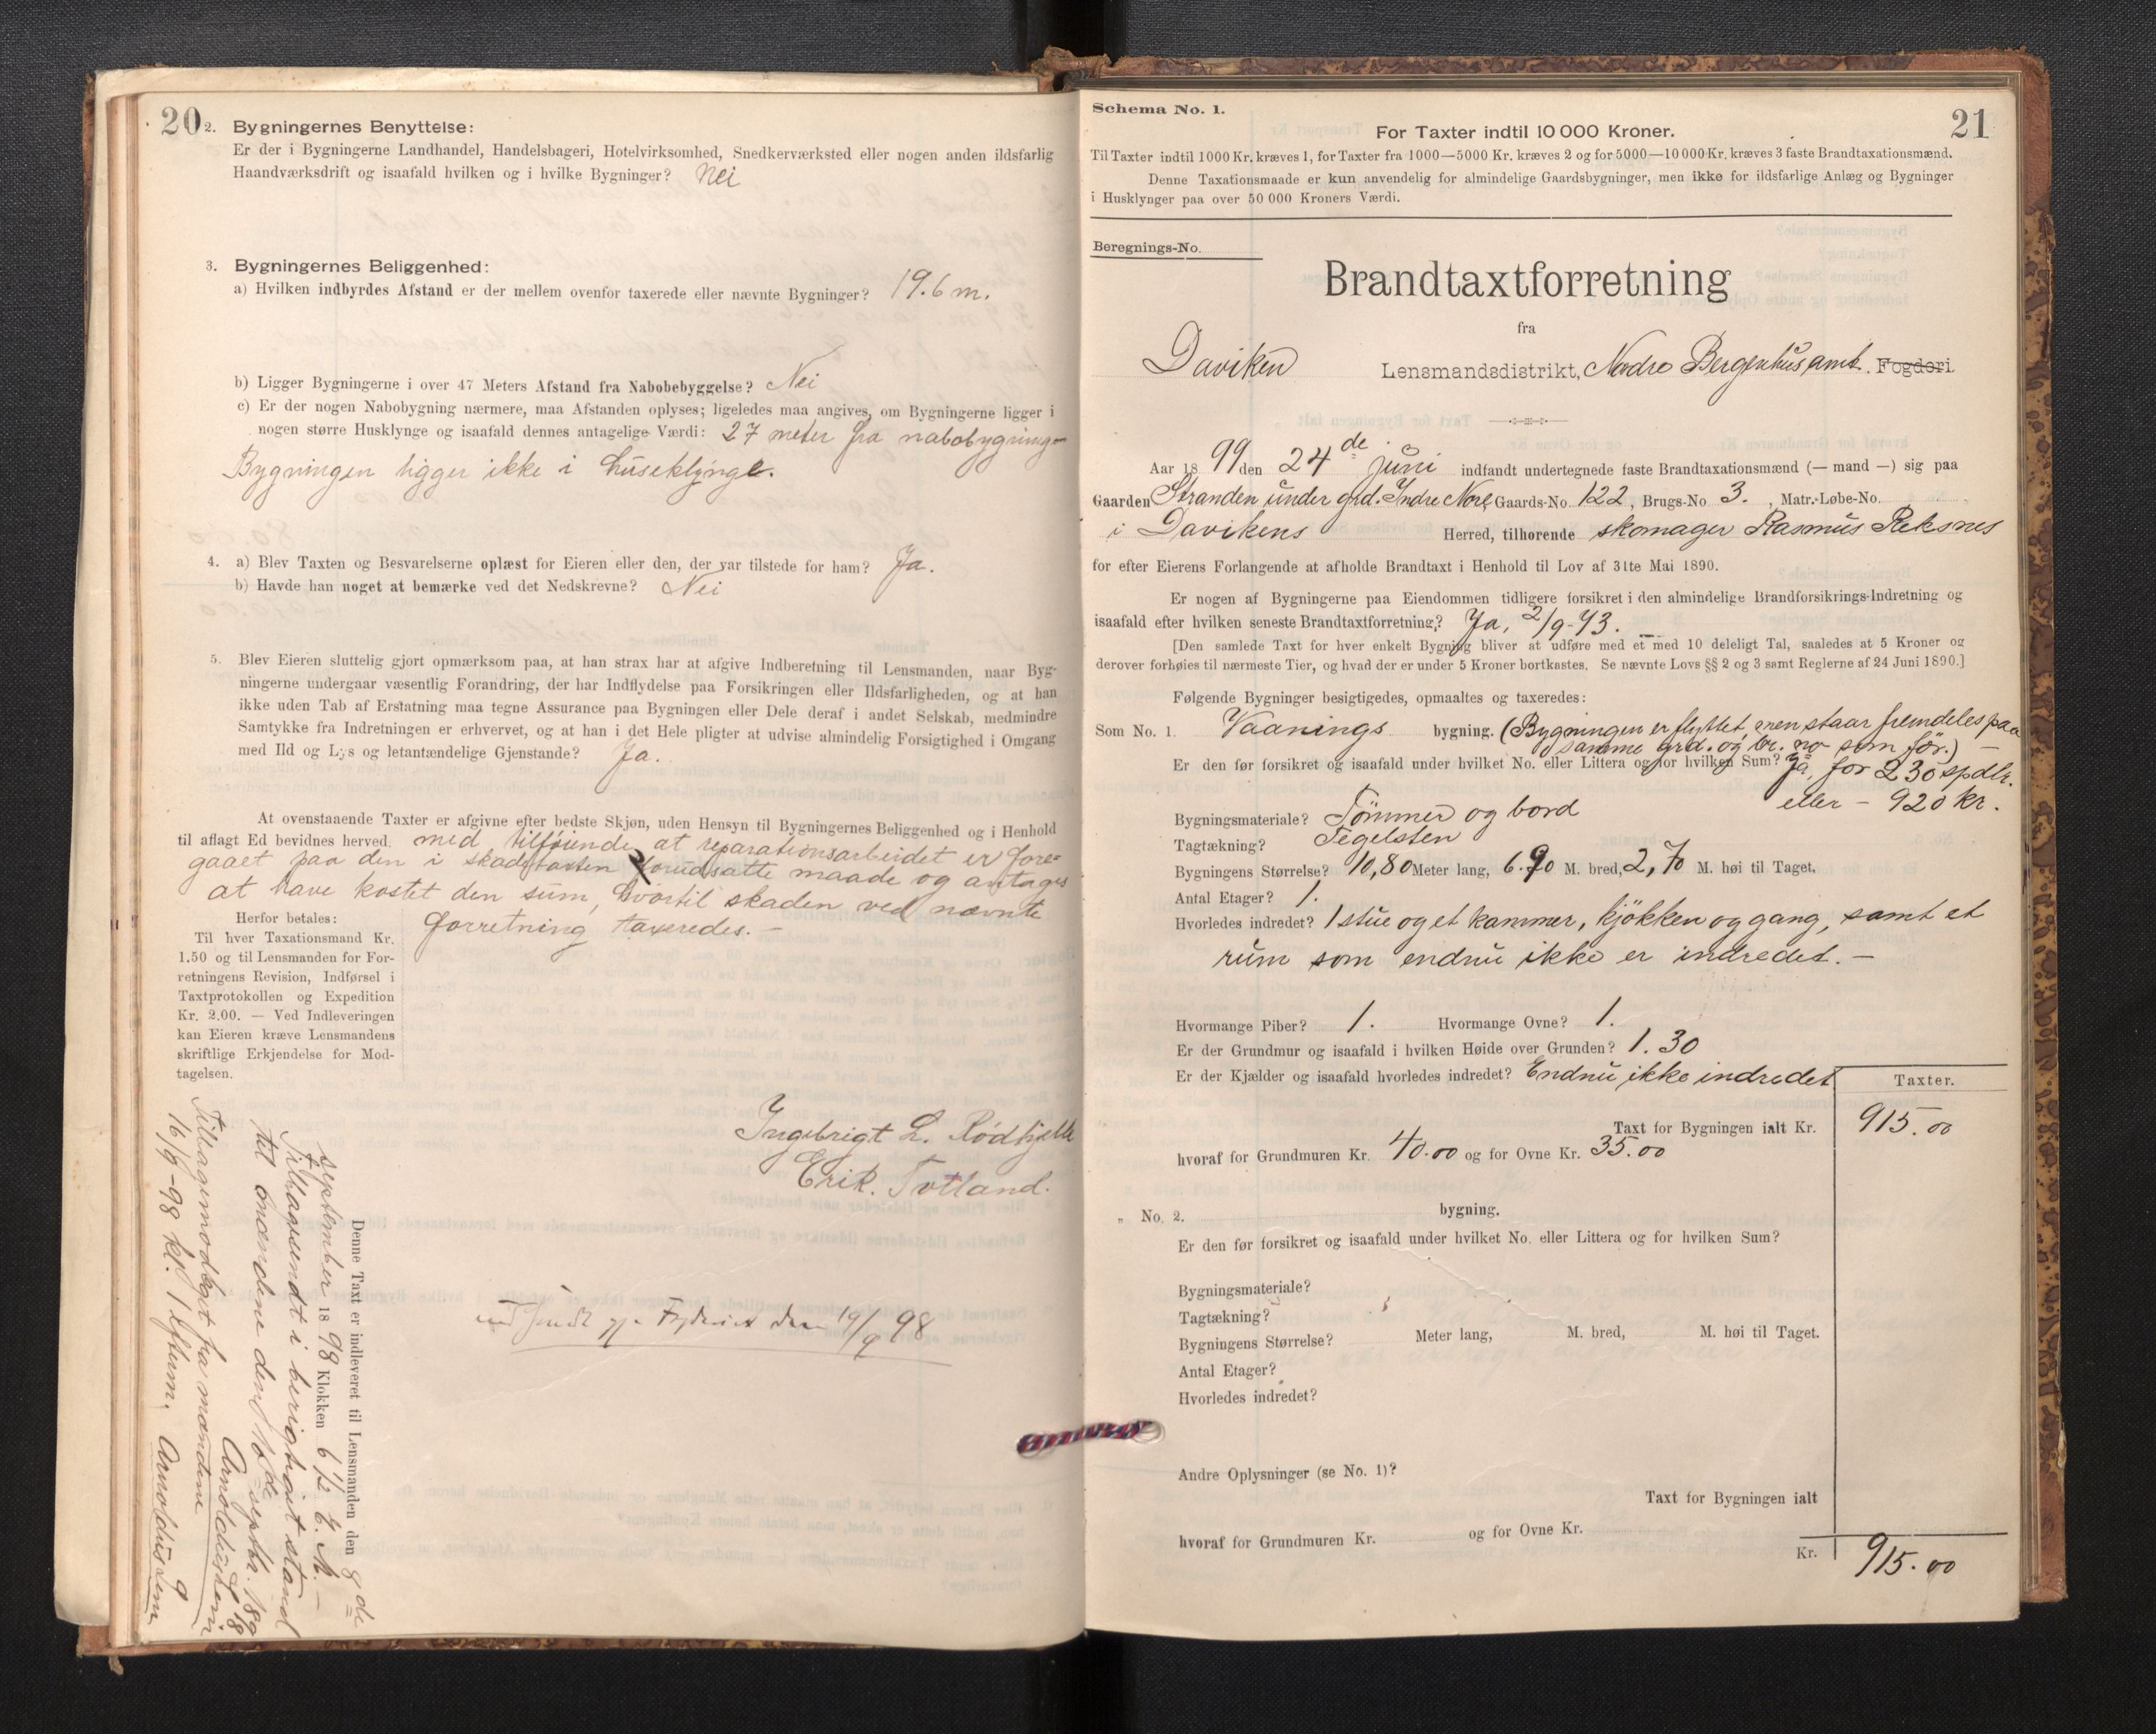 20
2. Bygningernes Benyttelse:
Er der i Bygningerne Landhandel, Handelsbageri, Hotelvirksomhed, Snedkerværksted eller nogen anden ildsfarlig
Haandværksdrift og isaafald hvilken og i hvilke Bygninger? Nei
3. Bygningernes Beliggenhed:
a) Hvilken indbyrdes Afstand er der mellem ovenfor taxerede eller nævnte Bygninger? 19.6 m.
b) Ligger Bygningerne i over 47 Meters Afstand fra Nabobebyggelse? Nei
c) Er der nogen Nabobygning nærmere, maa Afstanden oplyses; ligeledes maa angives, om Bygningerne ligger i
nogen større Husklynge og isaafald dennes antagelige Værdi: 27 meter fra nabobygning
Bygningen ligger ikke i huseklynge.
4. a) Blev Taxten og Besvarelserne oplæst for Eieren eller den, der var tilstede for ham? Ja.
b) Havde han noget at bemærke ved det Nedskrevne? Nei
5. Blev Eieren sluttelig gjort opmærksom paa, at han strax har at afgive Indberetning til Lensmanden, naar Byg-
ningerne undergaar væsentlig Forandring, der har Indflydelse paa Forsikringen eller Ildsfarligheden, og at han
ikke uden Tab af Erstatning maa tegne Assurance paa Bygningen eller Dele deraf i andet Selskab, medmindre
Samtykke fra Indretningen er erhvervet, og at han i det Hele pligter at udvise almindelig Forsigtighed i Omgang
med Ild og Lys og letantændelige Gjenstande? Ja.
At ovenstaaende Taxter er afgivne efter bedste Skjøn, uden Hensyn til Bygningernes Beliggenhed og i Henhold
til aflagt Ed bevidnes herved. med tilføiende, at reparationsarbeidet er fore-
gaaet paa den i skadetaxten forudsatte maade og antages
at have kostet den sum, hvortil skaden ved nævnte
forretning taxeredes. -
Herfor betales:
Til hver Taxationsmand Kr.
1.50 og til Lensmanden for For-
retningens Revision, Indførsel i
Taxtprotokollen og Expedition
Kr. 2.00. — Ved Indleveringen
kan Eieren kræve Lensmandens
skriftlige Erkjendelse for Mod-
tagelsen.
Ingebrigt L. Rødfjelle
Erik. Totland.
den 19/9 98
Denne Taxt er indleveret til Lensmanden den 8 de
september 1898 Klokken 6 1/2 E. M. -
Tilbagesendt i berigtiget stand
til mændene den sepbr. 1898
Arnoldus
Tilbagemodtaget fra mændene
16/9-98 kl. 1 Eftm. Arnoldus
Schema No. 1.
21
For Taxter indtil 10 000 Kroner.
Til Taxter indtil 1000 Kr. kræves 1, for Taxter fra 1000—5000 Kr. kræves 2 og for 5000—10 000 Kr. kræves 3 faste Brandtaxationsmænd.
Denne Taxationsmaade er kun anvendelig for almindelige Gaardsbygninger, men ikke for ildsfarlige Anlæg og Bygninger
i Husklynger paa over 50 000 Kroners Værdi.
Beregnings-No.
Brandtaxtforretning
fra
Daviken Lensmandsdistrikt, Nordre Bergenhus amt. Fogderi.
Aar 1899 den 24de juni indfandt undertegnede faste Brandtaxationsmænd (— mand —) sig paa
Gaarden Stranden under grd. Indre Nore, Gaards-No. 122, Brugs-No 3., Matr.-Løbe-No.
i Davikens Herred, tilhørende skomager Rasmus Reksnes
for efter Eierens Forlangende at afholde Brandtaxt i Henhold til Lov af 31te Mai 1890.
Er nogen af Bygningerne paa Eiendommen tidligere forsikret i den almindelige Brandforsikrings-Indretning og
isaafald efter hvilken seneste Brandtaxtforretning? Ja, 2/9-73.
[Den samlede Taxt for hver enkelt Bygning bliver at udføre med et med 10 deleligt Tal, saaledes at 5 Kroner og
derover forhøies til nærmeste Tier, og hvad der er under 5 Kroner bortkastes. Se nævnte Lovs §§ 2 og 3 samt Reglerne af 24 Juni 1890.]
Følgende Bygninger besigtigedes, opmaaltes og taxeredes:
Som No. 1. Vaanings bygning. (Bygningen er flyttet, men staar fremdeles paa
samme grd. og br. no som før.) -
Er den før forsikret og isaafald under hvilket No. eller Littera og for hvilken Sum? Ja, for 230 spdlr.
eller - 920 kr.
Bygningsmateriale? Tømmer og bord
Tagtækning? Tegelsten
Bygningens Størrelse? 10,80 Meter lang, 6.90 M. bred, 2,70 M. høi til Taget.
Antal Etager? 1.
Hvorledes indredet? 1 stue og et kammer, kjøkken og gang, samt et
rum som endnu ikke er indredet. -
Hvormange Piber? 1. Hvormange Ovne? 1.
Er der Grundmur og isaafald i hvilken Høide over Grunden? 1.30
Er der Kjælder og isaafald hvorledes indredet? Endnu ikke indredet
Taxter.
Taxt for Bygningen ialt Kr. 915.00
hvoraf for Grundmuren Kr. 40.00 og for Ovne Kr. 35.00
„ No. 2. bygning.
Er den før forsikret og isaafald under hvilket No. eller Littera og for hvilken Sum?
Bygningsmateriale?
Tagtækning?
Bygningens Størrelse? Meter lang, M. bred, M. høi til Taget.
Antal Etager?
Hvorledes indredet?
Andre Oplysninger (se No. 1)?
Taxt for Bygningen ialt
hvoraf for Grundmuren Kr. og for Ovne Kr.
Kr. 915.00